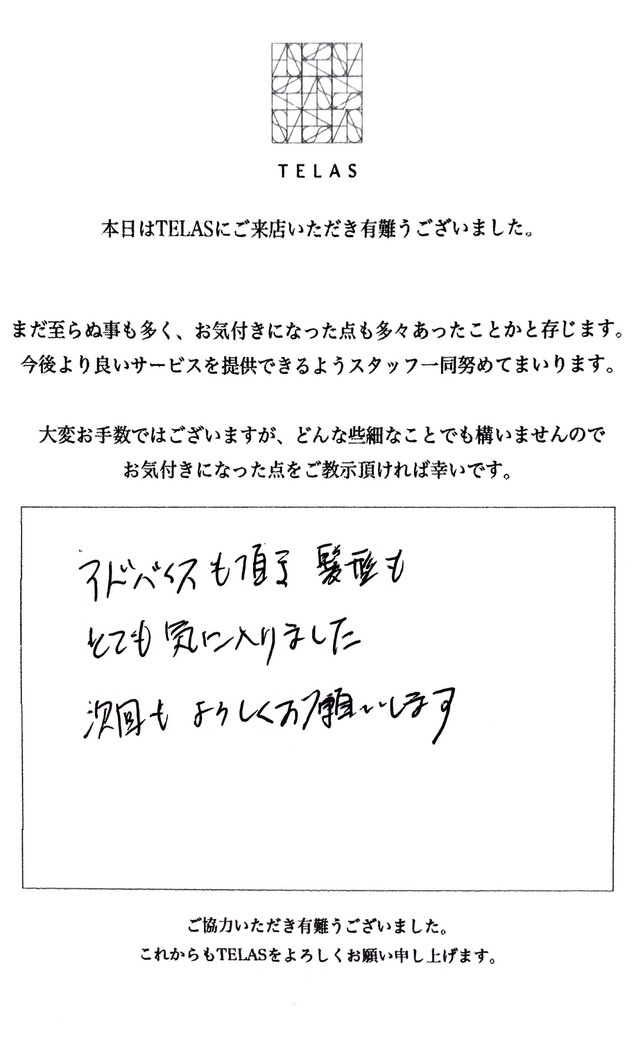 TELAS
本日はTELASにご来店いただき有難うございました。
まだ至らぬ事も多く、お気付きになった点も多々あったことかと存じます。
今後より良いサービスを提供できるようスタッフ一同努めてまいります。
大変お手数ではございますが、どんな些細なことでも構いませんので
お気付きになった点をご教示頂ければ幸いです。
アドバイスも頂き 髪型も
とても気に入りました
次回も よろしくお願いします
ご協力いただき有難うございました。
これからもTELASをよろしくお願い申し上げます。